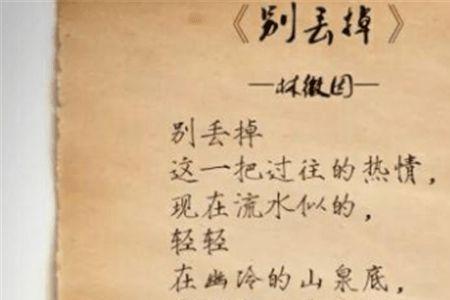 《别丢掉》
—林徽因—
别丢掉
这一把过往的热情，
现在流水似的，
轻轻
在幽冷的山泉底，